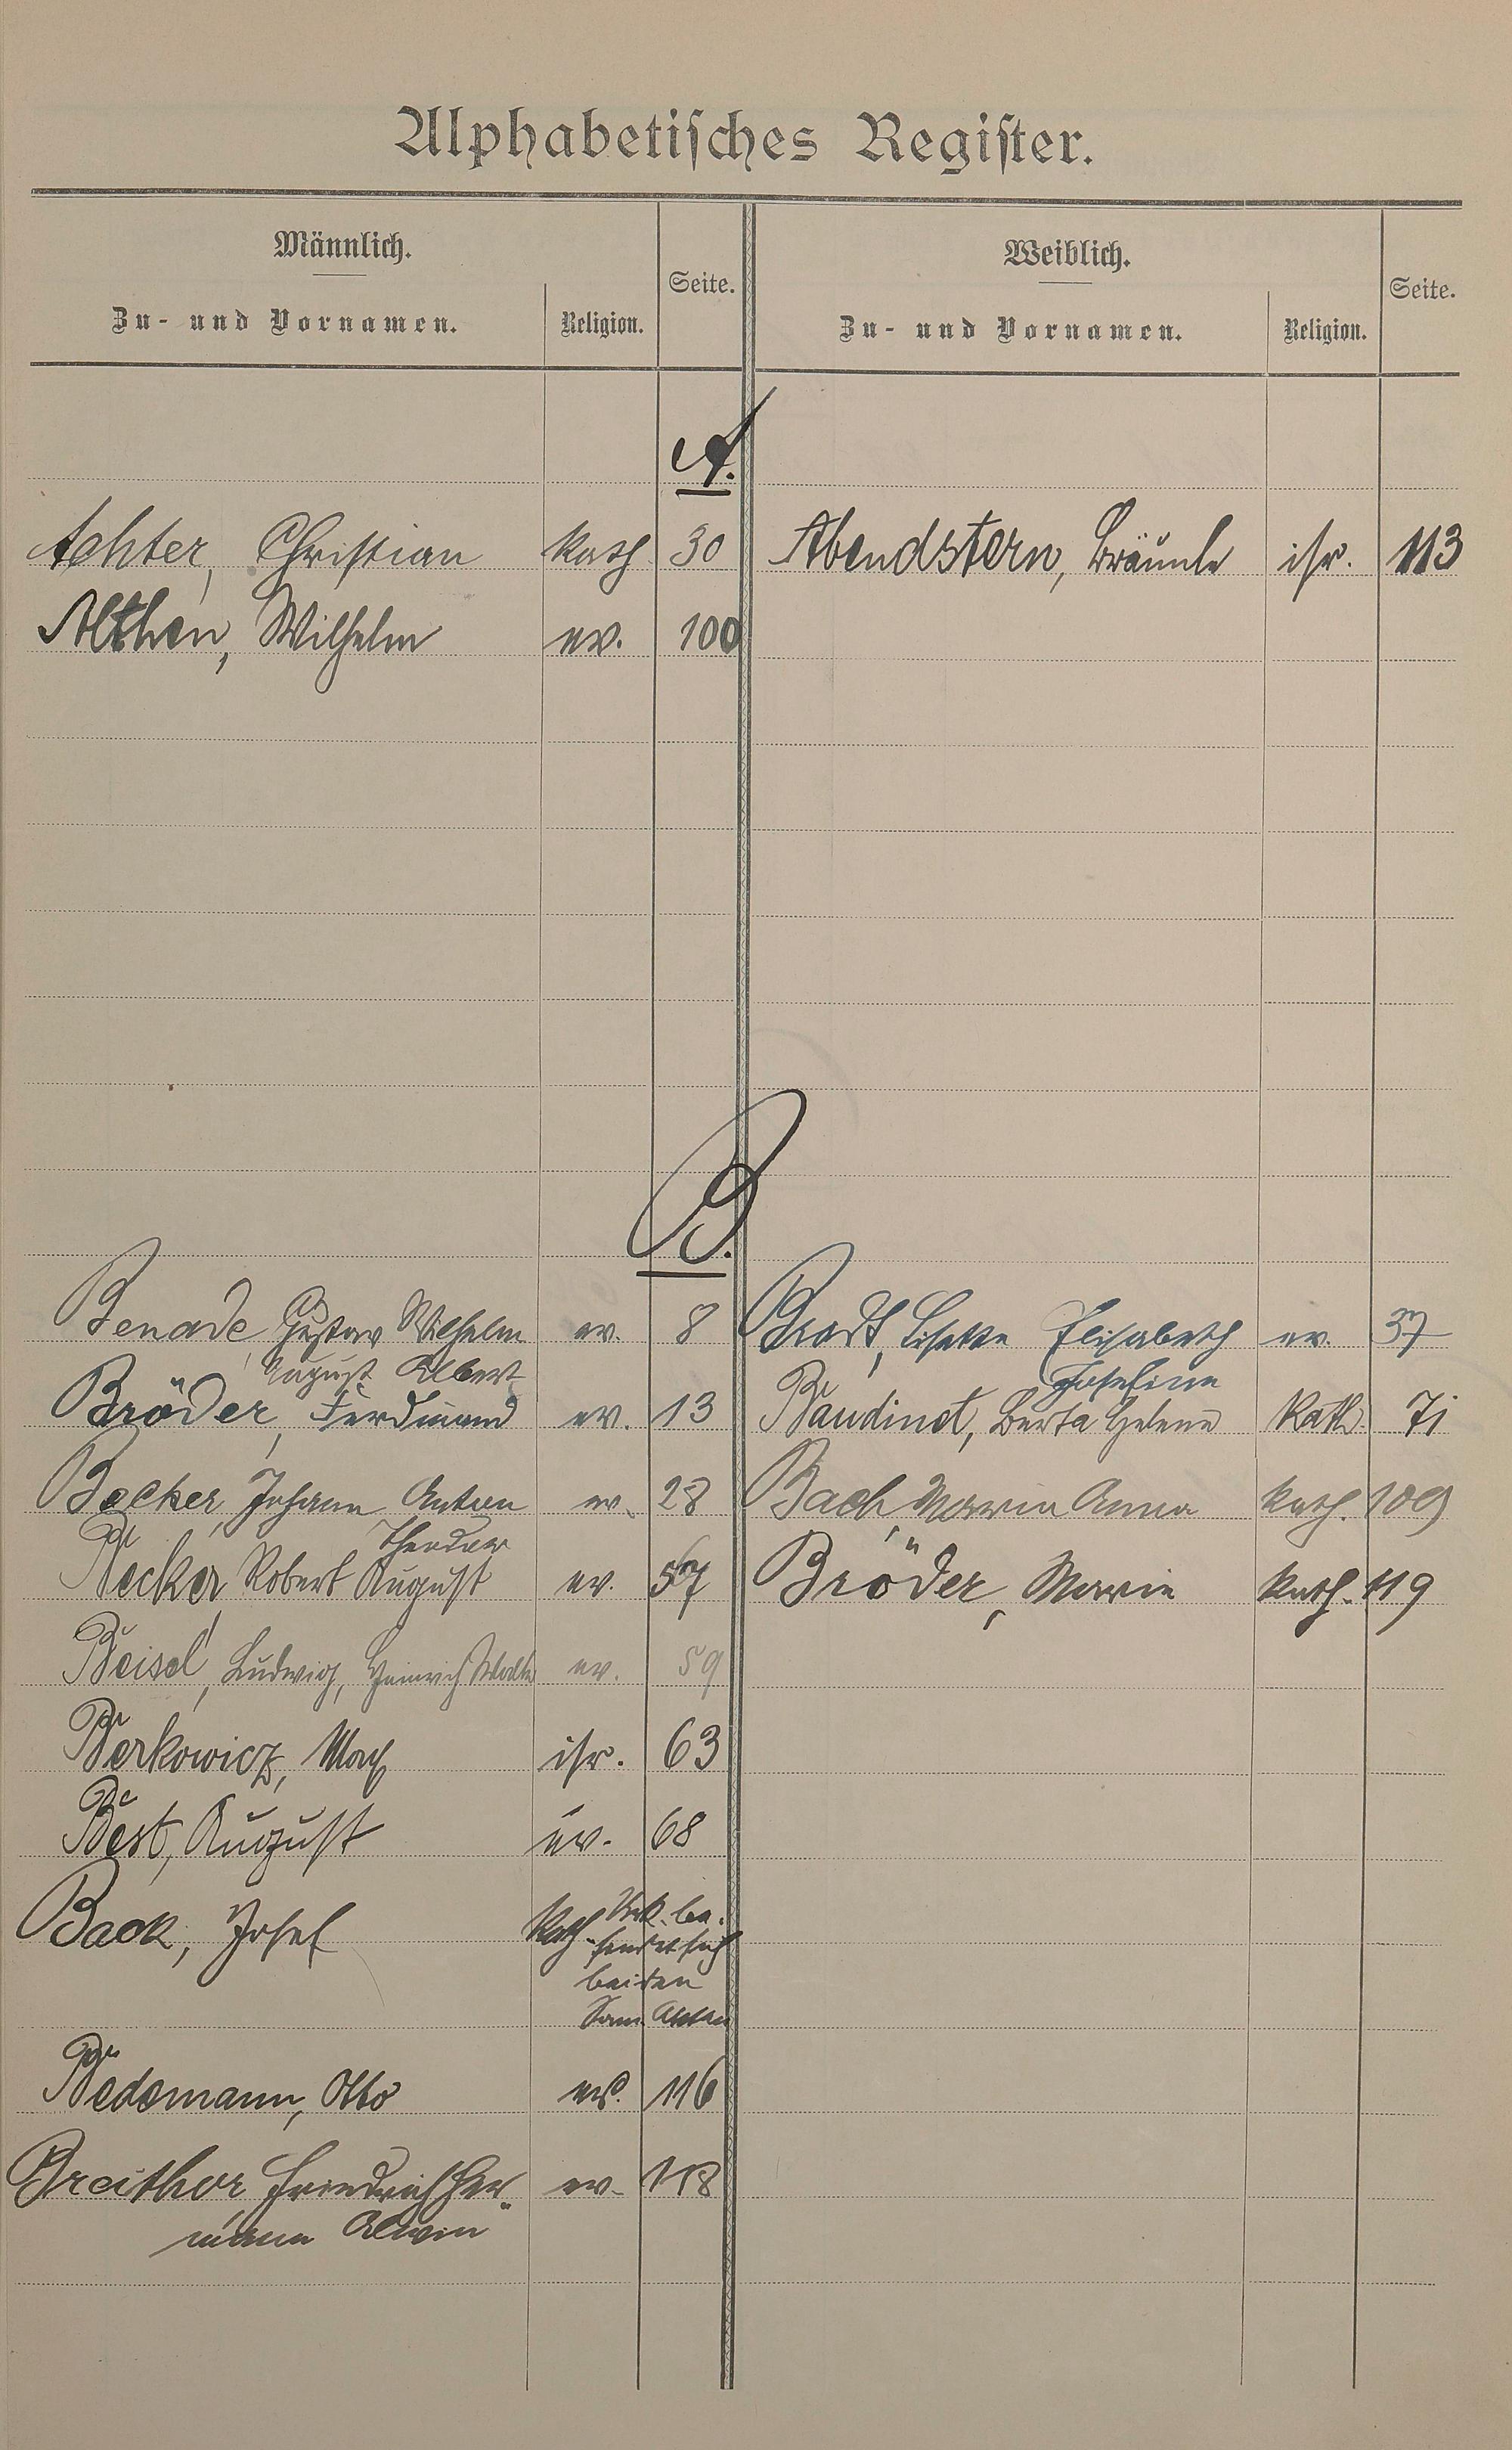 Alphabetisches Register.
Männlich. Weiblich.
Zu- und Vornamen. Religion. Seite. Zu- und Vornamen. Religion. Seite.
A.
Achter, Christian kath 30 Abendstern, Bräunle isr. 113
Althen, Wilhelm ev. 100
B.
Benade, Gustav Wilhelm ev. 8 Brodt, Lisette Elisabeth ev. 37
August Albert Josefine
Bröder, Ferdinand ev. 13 Baudinot, Berta Helene Kath. 71
Becker, Johann Anton ev. 28 Bach, Maria Anna kath. 109
Theodor
Becker, Robert August ev. 57 Bröder, Maria kath. 119
Beisel, Ludwig, Heinrich Walter ev. 59
Berkowicz, Max isr. 63
Best, August ev. 68
Back, Josef Kath. be-
findet sich
bei den
Sam. Akten
Bedemann, Otto ev. 116
Breithor, Friedrich Her- ev. 118
mann Alwin